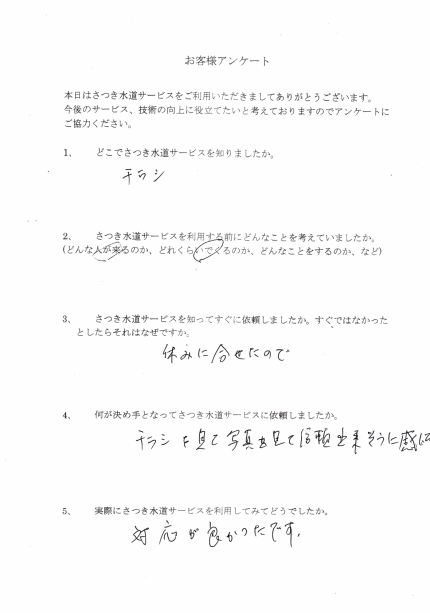 お客様アンケート
本日はさつき水道サービスをご利用いただきましてありがとうございます。
今後のサービス、技術の向上に役立てたいと考えておりますのでアンケートに
ご協力ください。
1、 どこでさつき水道サービスを知りましたか。
チラシ
2、 さつき水道サービスを利用する前にどんなことを考えていましたか。
(どんな人が来るのか、どれくらいでくるのか、どんなことをするのか、など)
3、 さつき水道サービスを知ってすぐに依頼しましたか。すぐではなかった
としたらそれはなぜですか。
休みに合せたので
4、 何が決め手となってさつき水道サービスに依頼しましたか。
チラシを見て写真を見て信頼出来そうに感じ
5、 実際にさつき水道サービスを利用してみてどうでしたか。
対応が良かったです。